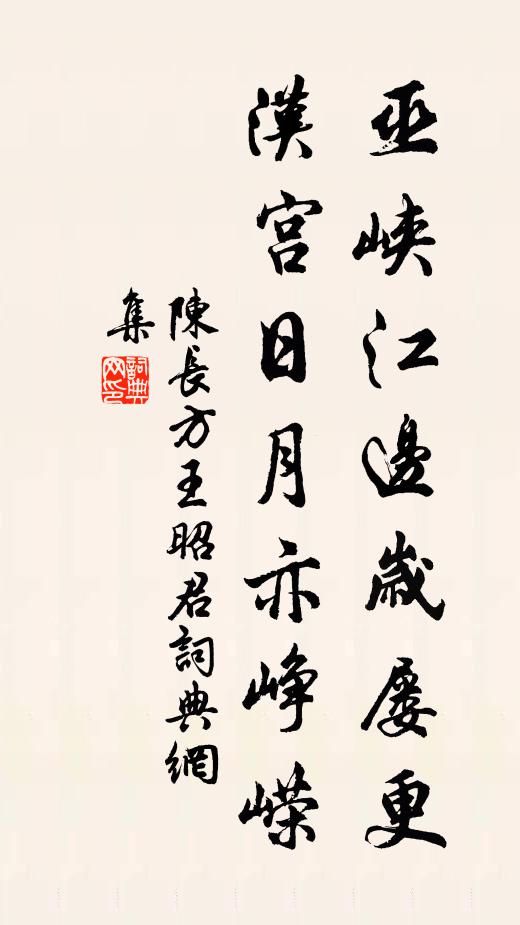 巫峽江邊歲屢更
漢宮日月亦崢嶸
陳長方王昭君詞典網
集
詞典网印